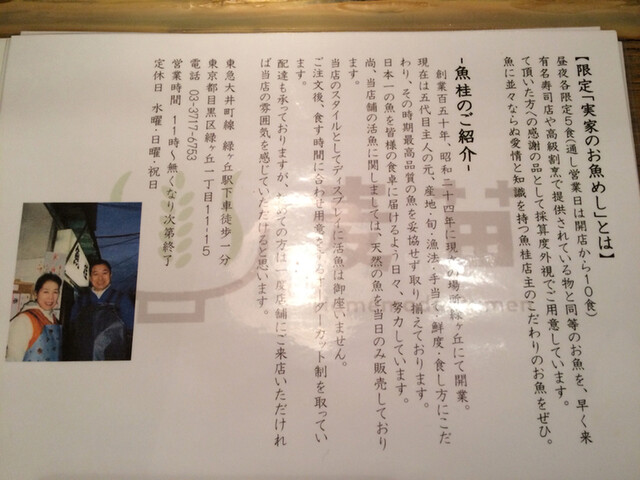 【限定「実家のお魚めし」とは】
昼夜各限定５食(通し営業日は開店から１０食)
有名寿司店や高級割烹で提供されている物と同等のお魚を、早く来
て頂いた方への感謝の品として採算度外視でご用意しています。
魚に並々ならぬ愛情と知識を持つ魚桂店主のこだわりのお魚をぜひ。
-魚桂のご紹介-
創業百五十年、昭和二十四年に現 の場所緑ヶ丘にて開業。
現在は五代目主人の元、産地・旬・漁法・手当て 鮮度・食し方にこだ
わり、その時期最高品質の魚を妥協せず取り揃えております。
日本一の魚を皆様の食卓に届けるよう日々、努力しています。
尚、当店舗の活魚に関しましては、天然の魚を当日のみ販売しており
ます。
当店のスタイルとしてディスプレイに活魚は御座いません。
ご注文後、食す時間に合わせ用意 オーダーカット制を取ってい
ます。
配達も承っておりますが、 の方は一度店舗にご来店いただけれ
ば当店の雰囲気を感じていただけると思います。
東急大井町線 緑ヶ丘駅下車徒歩一分
東京都目黒区緑ヶ丘一丁目11-15
電話 03-3717-6753
営業時間 11時～無くなり次第終了
定休日 水曜・日曜・祝日